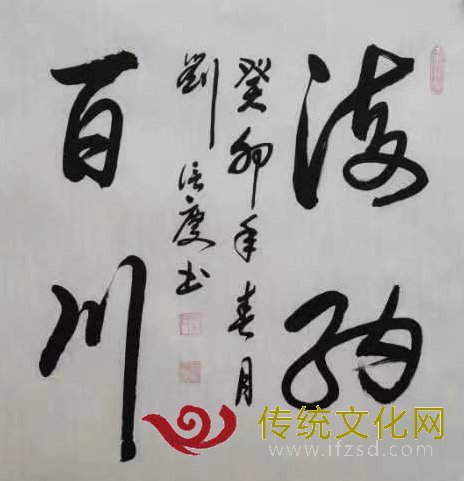 海納
癸卯年春月
劉
书
百川
传统文化网
www.ifzsd.com